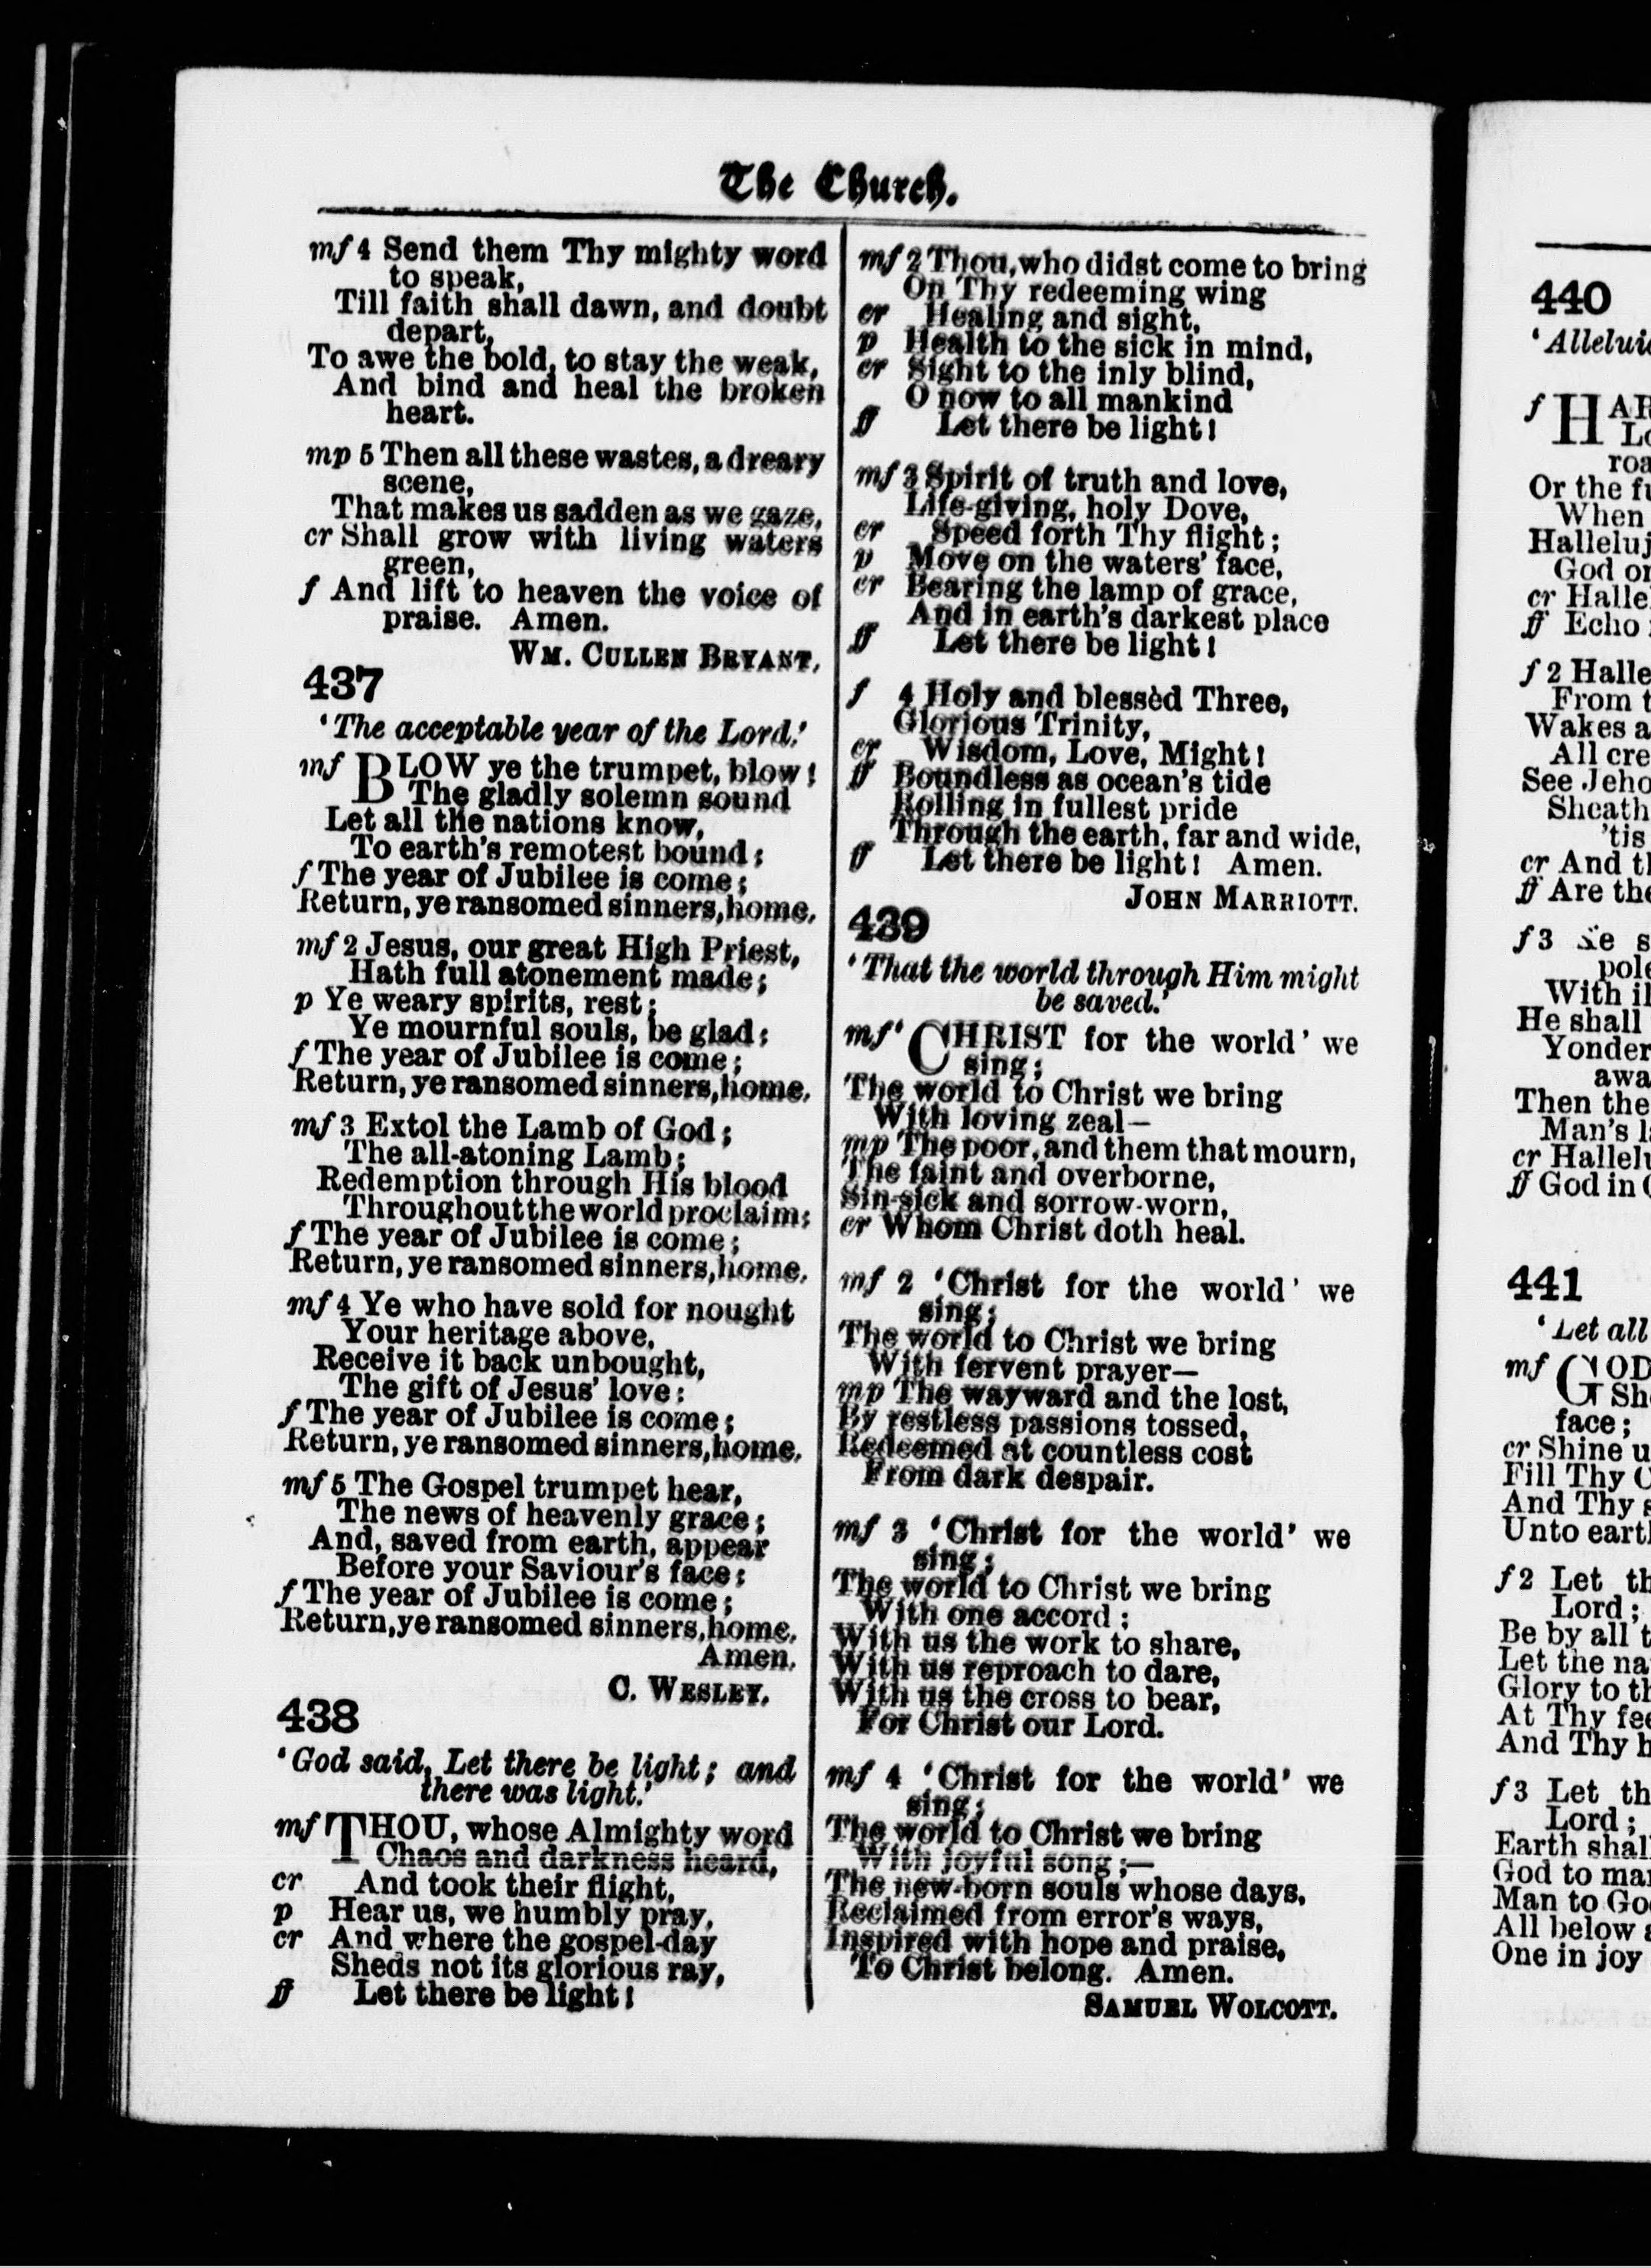 The Church.
mf 4 Send them Thy mighty word
to speak,
Till faith shall dawn, and doubt
depart,
To awe the bold, to stay the weak,
And bind and heal the broken
heart.
mp 5 Then all these wastes, a dreary
scene,
That makes us sadden as we gaze,
cr Shall grow with living waters
green,
f And lift to heaven the voice of
praise. Amen.
WM. CULLEN BRYANT.
437
'The acceptable year of the Lord.'
mf BLOW ye the trumpet, blow!
The gladly solemn sound
Let all the nations know,
To earth's remotest bound;
f The year of Jubilee is come;
Return, ye ransomed sinners, home.
mf 2 Jesus, our great High Priest,
Hath full atonement made;
p Ye weary spirits, rest;
Ye mournful souls, be glad;
f The year of Jubilee is come;
Return, ye ransomed sinners, home.
mf 3 Extol the Lamb of God;
The all-atoning Lamb;
Redemption through His blood
Throughout the world proclaim;
f The year of Jubilee is come;
Return, ye ransomed sinners, home.
mf 4 Ye who have sold for nought
Your heritage above,
Receive it back unbought,
The gift of Jesus' love:
f The year of Jubilee is come;
Return, ye ransomed sinners, home.
mf 5 The Gospel trumpet hear,
The news of heavenly grace;
And, saved from earth, appear
Before your Saviour's face;
f The year of Jubilee is come;
Return, ye ransomed sinners, home.
Amen.
C. WESLEY.
438
'God said, Let there be light; and
there was light.'
mf THOU, whose Almighty word
Chaos and darkness heard,
cr And took their flight,
p Hear us, we humbly pray,
cr And where the gospel-day
Sheds not its glorious ray,
ff Let there be light!
mf 2 Thou, who didst come to bring
On Thy redeeming wing
cr Healing and sight,
p Health to the sick in mind,
cr Sight to the inly blind,
O now to all mankind
ff Let there be light!
mf 3 Spirit of truth and love,
Life-giving, holy Dove,
cr Speed forth Thy flight;
p Move on the waters' face,
cr Bearing the lamp of grace,
And in earth's darkest place
ff Let there be light!
f 4 Holy and blessèd Three,
Glorious Trinity,
cr Wisdom, Love, Might!
ff Boundless as ocean's tide
Rolling in fullest pride
Through the earth, far and wide,
ff Let there be light! Amen.
JOHN MARRIOTT.
439
'That the world through Him might
be saved.'
mf 'CHRIST for the world' we
sing;
The world to Christ we bring
With loving zeal—
mp The poor, and them that mourn,
The faint and overborne,
Sin-sick and sorrow-worn,
cr Whom Christ doth heal.
mf 2 'Christ for the world' we
sing;
The world to Christ we bring
With fervent prayer—
mp The wayward and the lost,
By restless passions tossed,
Redeemed at countless cost
From dark despair.
mf 3 'Christ for the world' we
sing;
The world to Christ we bring
With one accord;
With us the work to share,
With us reproach to dare,
With us the cross to bear,
For Christ our Lord.
mf 4 'Christ for the world' we
sing;
The world to Christ we bring
With joyful song;—
The new-born souls whose days,
Reclaimed from error's ways,
Inspired with hope and praise,
To Christ belong. Amen.
SAMUEL WOLCOTT.
440
f
Or the
When
God
cr
ff Echo
f 2
From
Wakes a
All
See
Sheath
'tis
cr And
ff Are
f 3
With
He shall
Then
Man's
cr
ff God in
441
'Let all
mf GOD
face;
cr Shine
Fill Thy
And Thy
Unto
f 2 Let
Lord;
Be by all
Let the
Glory to
At Thy
And Thy
f 3 Let
Lord;
Earth
God to
Man to
All below
One in joy